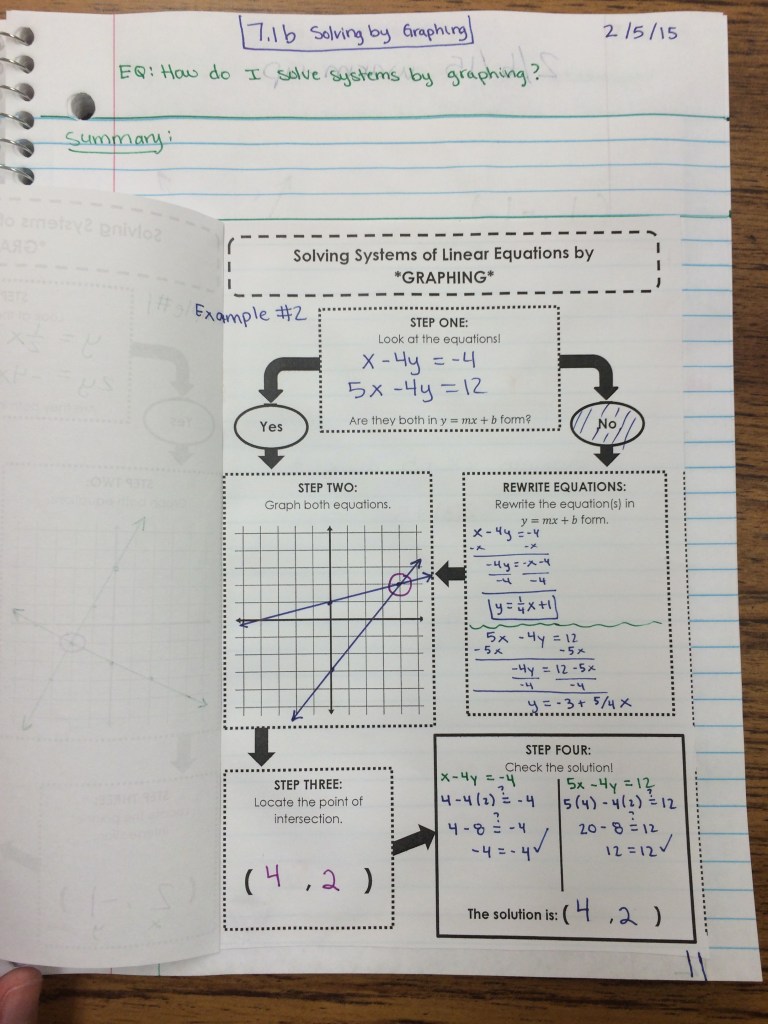 7.1b Solving by Graphing
2/5/15
EQ: How do I solve systems by graphing?
Summary:
Solving Systems of Linear Equations by
*GRAPHING*
Example #2
STEP ONE:
Look at the equations!
x - 4y = -4
5x - 4y = 12
Are they both in y = mx + b form?
Yes
No
STEP TWO:
Graph both equations.
REWRITE EQUATIONS:
Rewrite the equation(s) in
y = mx + b form.
x - 4y = -4
-x -x
-4y = -x - 4
-4 -4
y = 1/4 x + 1
5x - 4y = 12
-5x -5x
-4y = 12 - 5x
-4 -4
y = -3 + 5/4 x
STEP THREE:
Locate the point of
intersection.
( 4 , 2 )
STEP FOUR:
Check the solution!
x - 4y = -4
4 - 4(2) ≟ -4
4 - 8 ≟ -4
-4 = -4 ✓
5x - 4y = 12
5(4) - 4(2) ≟ 12
20 - 8 ≟ 12
12 = 12 ✓
The solution is: ( 4 , 2 )
11